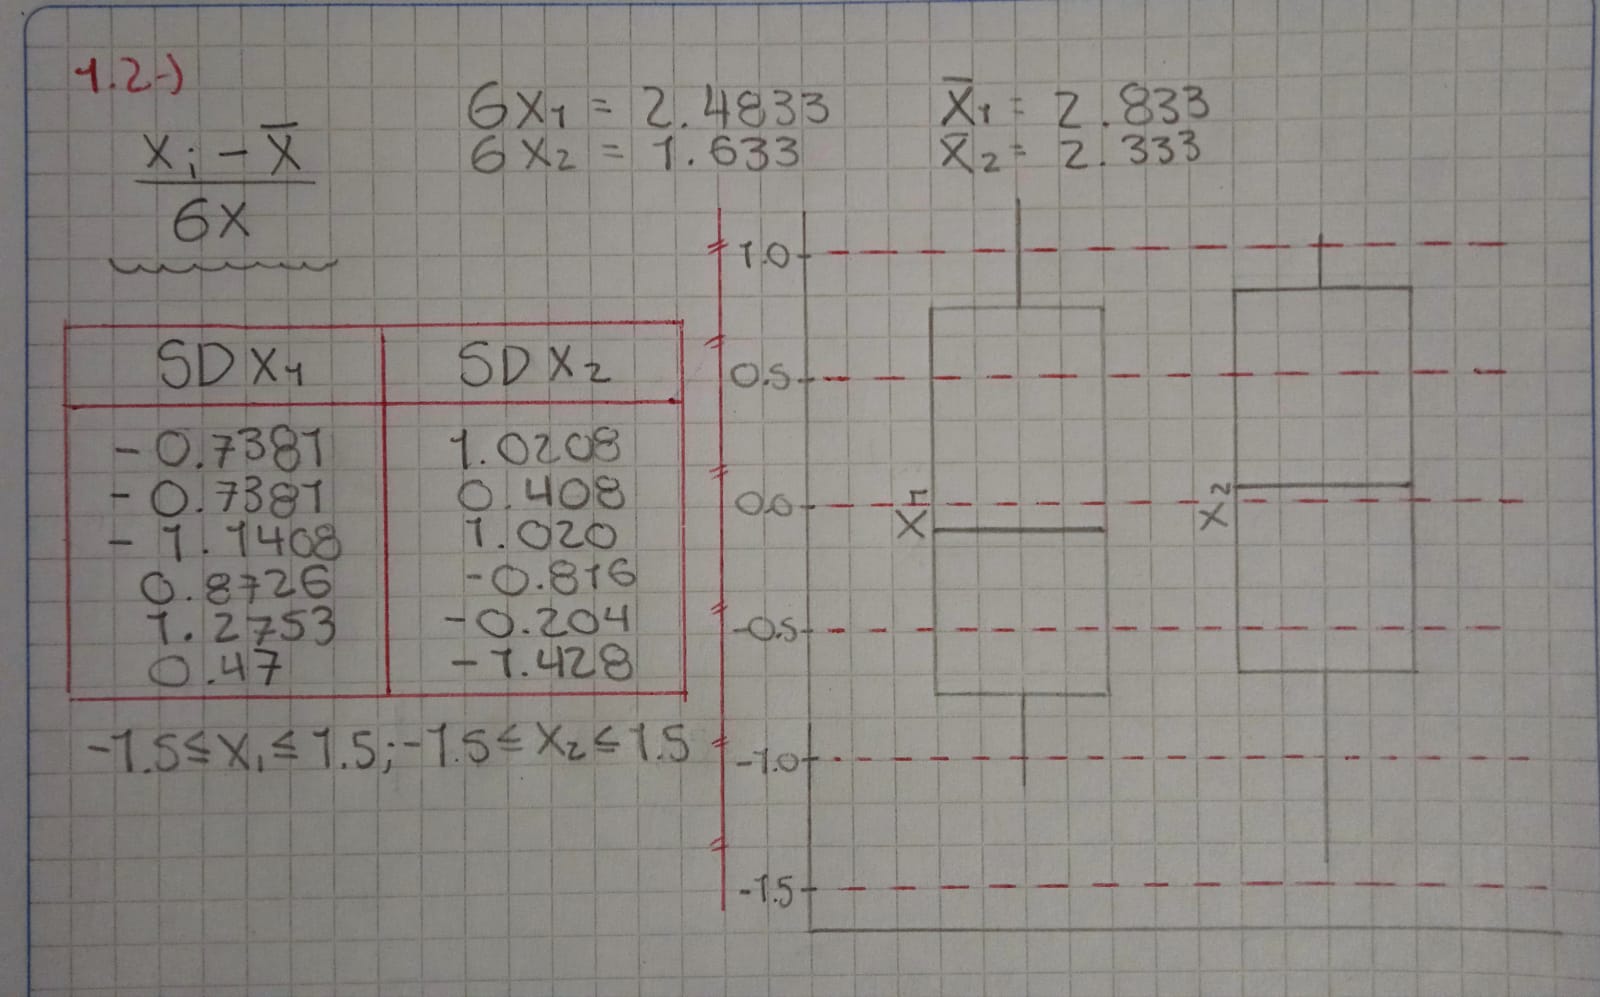 1.2-)
6X1 = 2.4833
6X2 = 1.633
X̄1 = 2.833
X̄2 = 2.333
Xi - X̄
6X
SD X1 SD X2
-0.7381 1.0208
-0.7381 0.408
-1.1408 1.020
0.8726 -0.816
1.2753 -0.204
0.47 -1.428
-1.5 ≤ X1 ≤ 1.5; -1.5 ≤ X2 ≤ 1.5
1.0
0.5
0.0
-0.5
-1.0
-1.5
X1
X2